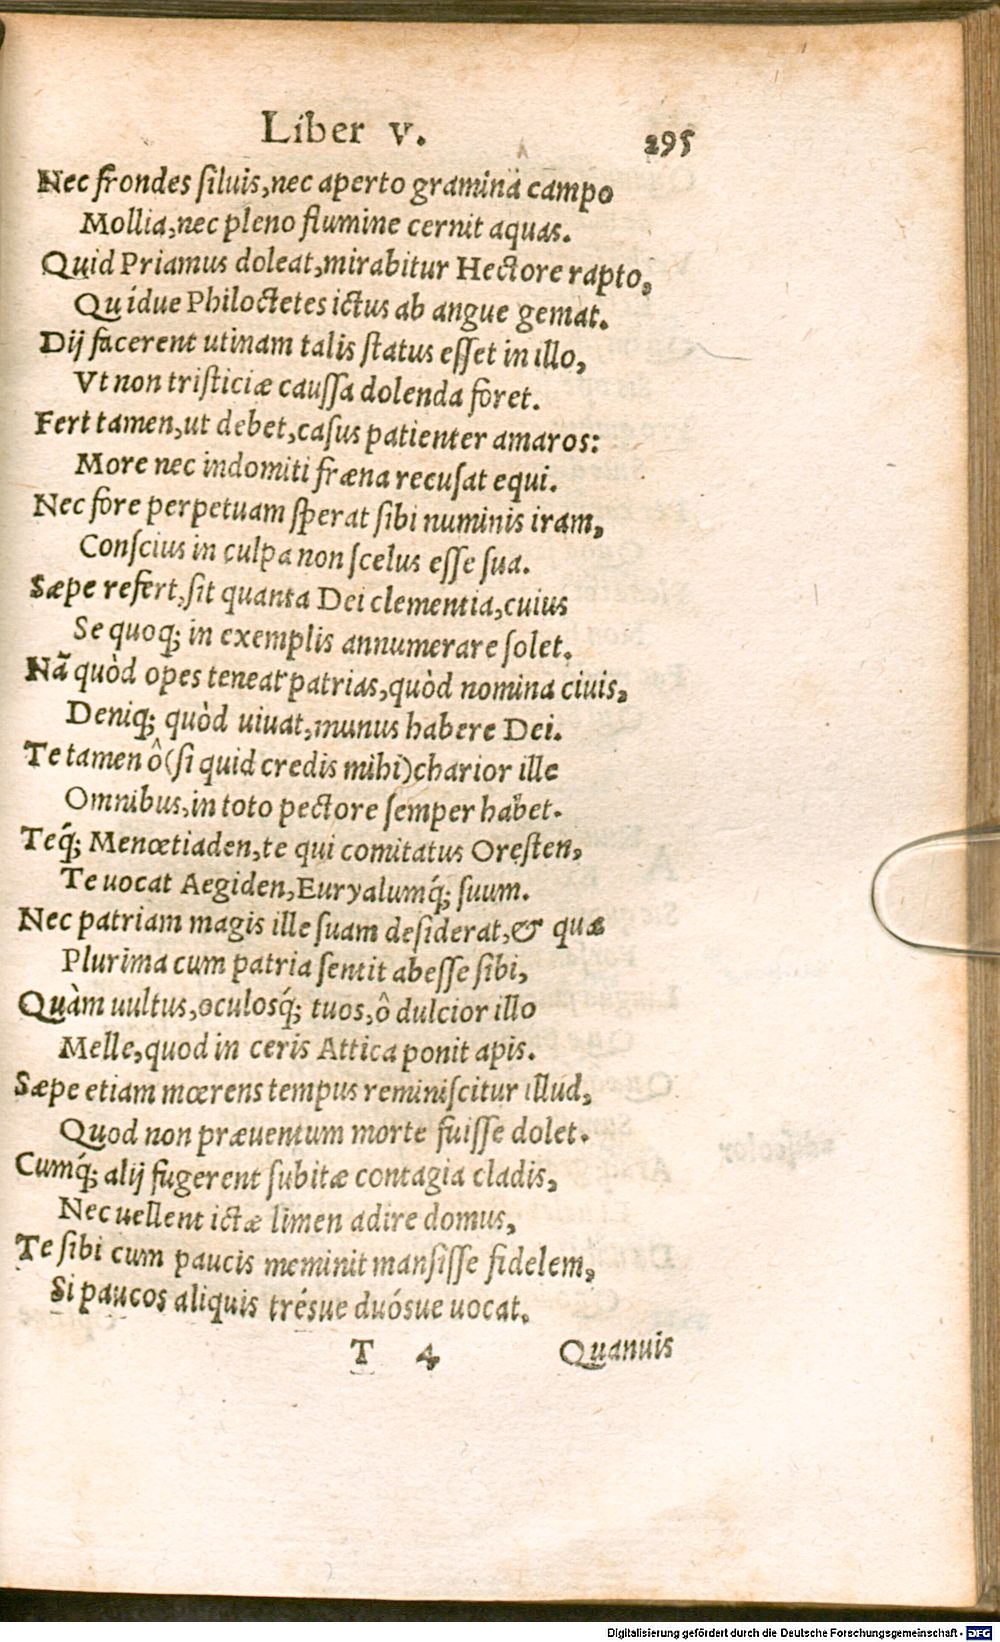 Liber v.
295
Nec frondes siluis, nec aperto gramina campo
Mollia, nec pleno flumine cernit aquas.
Quid Priamus doleat, mirabitur Hectore rapto,
Quidue Philoctetes ictus ab angue gemat.
Dij facerent utinam talis status esset in illo,
Vt non tristiciæ caussa dolenda foret.
Fert tamen, ut debet, casus patienter amaros:
More nec indomiti fræna recusat equi.
Nec fore perpetuam sperat sibi numinis iram,
Conscius in culpa non scelus esse sua.
Sæpe refert, sit quanta Dei clementia, cuius
Se quoq; in exemplis annumerare solet.
Nã quòd opes teneat patrias, quòd nomina ciuis,
Deniq; quòd uiuat, munus habere Dei.
Te tamen ô (si quid credis mihi) charior ille
Omnibus, in toto pectore semper habet.
Teq́; Menœtiaden, te qui comitatus Oresten,
Te uocat Aegiden, Euryalumq́; suum.
Nec patriam magis ille suam desiderat, & quæ
Plurima cum patria sentit abesse sibi,
Quàm uultus, oculosq́; tuos, ô dulcior illo
Melle, quod in ceris Attica ponit apis.
Sæpe etiam mœrens tempus reminiscitur illud,
Quod non præuentum morte fuisse dolet.
Cumq́; alij fugerent subitæ contagia cladis,
Nec uellent ictæ limen adire domus,
Te sibi cum paucis meminit mansisse fidelem,
Si paucos aliquis trésue duósue uocat.
T 4
Quanuis
Digitalisierung gefördert durch die Deutsche Forschungsgemeinschaft - DFG